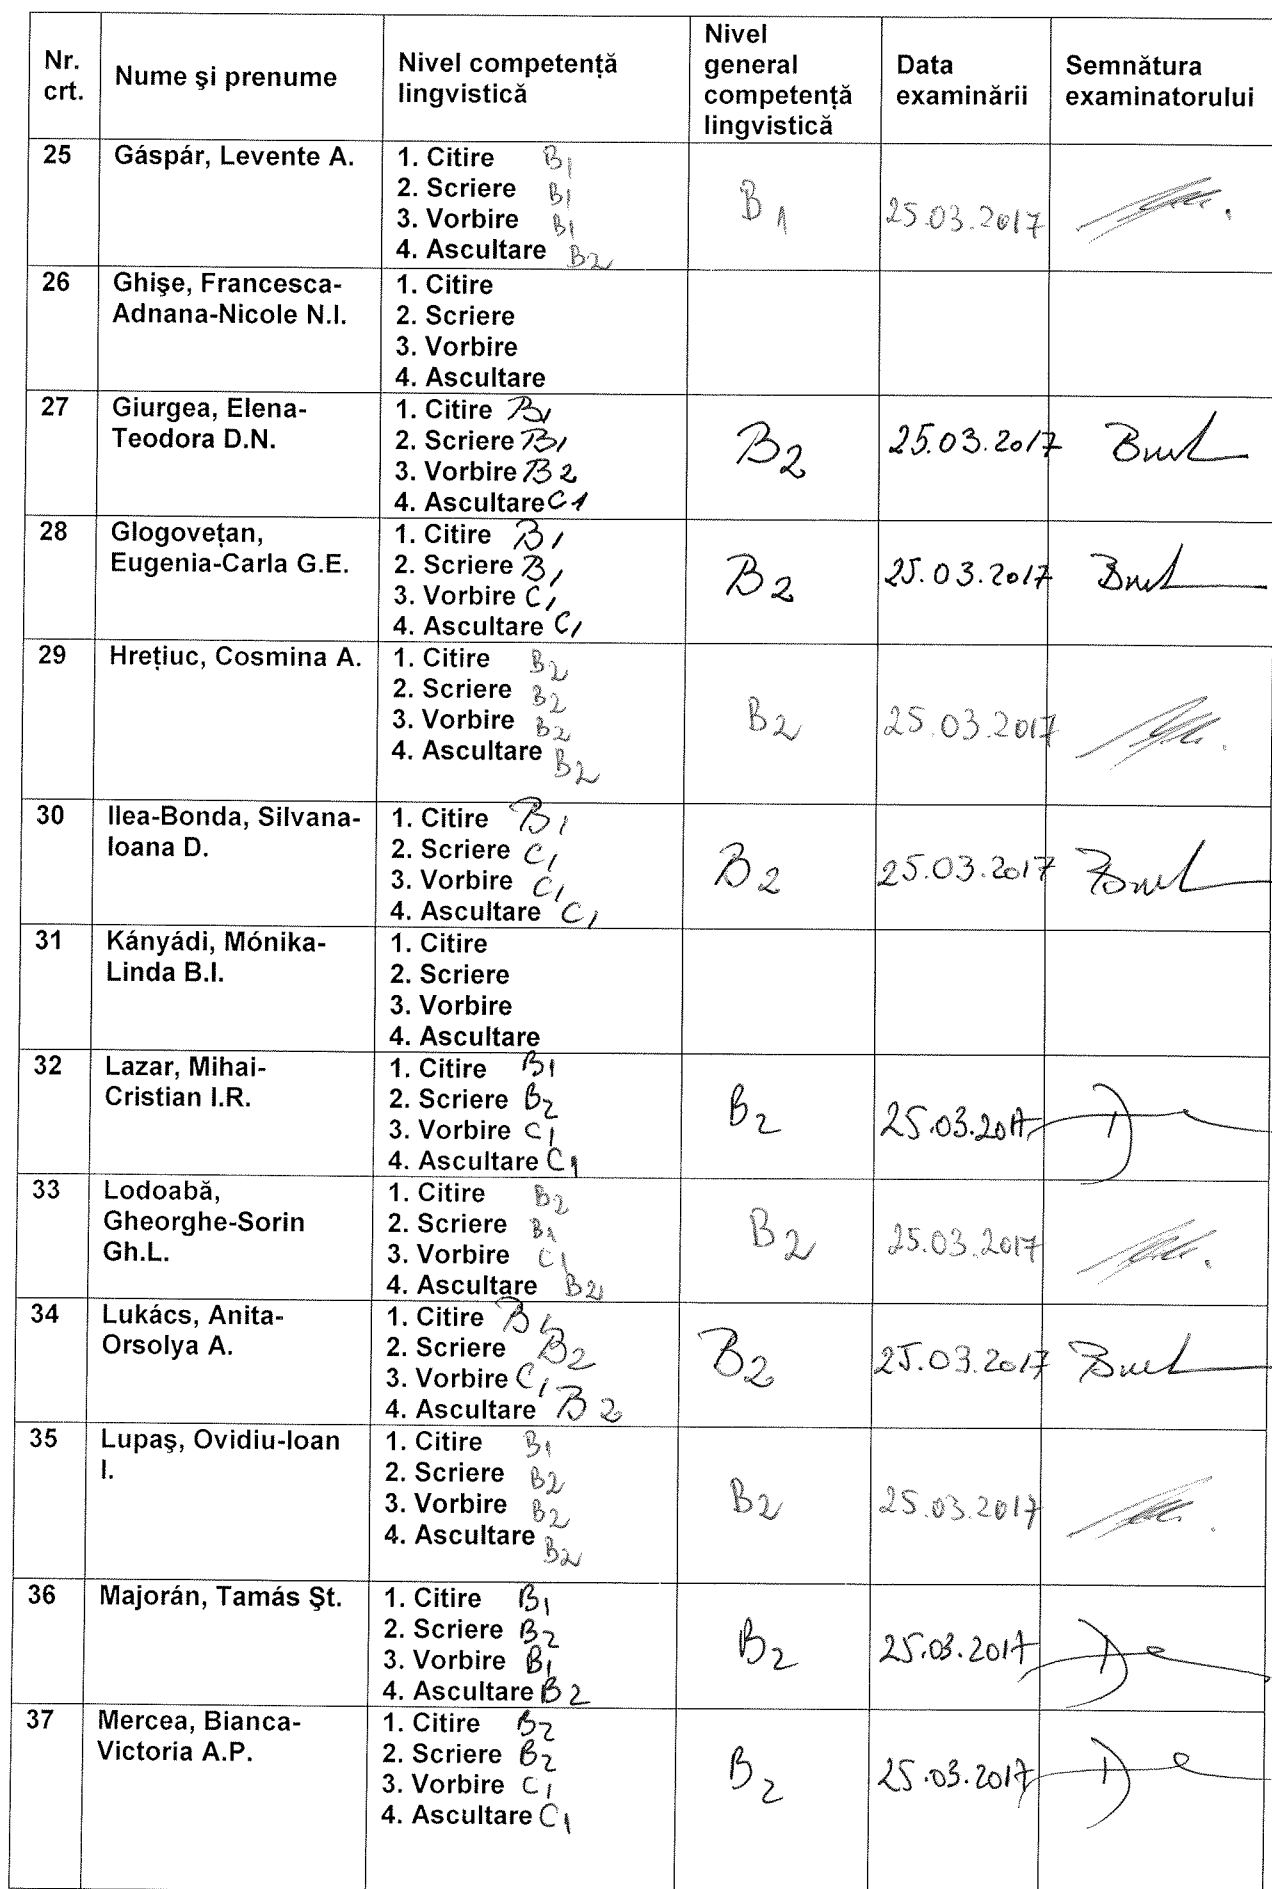 Nr. crt.
Nume şi prenume
Nivel competență lingvistică
Nivel general competență lingvistică
Data examinării
Semnătura examinatorului
25
Gáspár, Levente A.
1. Citire B1
2. Scriere B1
3. Vorbire B1
4. Ascultare B2
B1
25.03.2017
26
Ghişe, Francesca-
Adnana-Nicole N.I.
1. Citire
2. Scriere
3. Vorbire
4. Ascultare
27
Giurgea, Elena-
Teodora D.N.
1. Citire B1
2. Scriere B1
3. Vorbire B2
4. Ascultare C1
B2
25.03.2017
28
Glogovețan,
Eugenia-Carla G.E.
1. Citire B1
2. Scriere B1
3. Vorbire C1
4. Ascultare C1
B2
25.03.2017
29
Hrețiuc, Cosmina A.
1. Citire B2
2. Scriere B2
3. Vorbire B2
4. Ascultare B2
B2
25.03.2017
30
Ilea-Bonda, Silvana-
Ioana D.
1. Citire B1
2. Scriere C1
3. Vorbire C1
4. Ascultare C1
B2
25.03.2017
31
Kányádi, Mónika-
Linda B.I.
1. Citire
2. Scriere
3. Vorbire
4. Ascultare
32
Lazar, Mihai-
Cristian I.R.
1. Citire B1
2. Scriere B2
3. Vorbire C1
4. Ascultare C1
B2
25.03.2017
33
Lodoabă,
Gheorghe-Sorin
Gh.L.
1. Citire B2
2. Scriere
3. Vorbire C1
4. Ascultare B2
B2
25.03.2017
34
Lukács, Anita-
Orsolya A.
1. Citire B1
2. Scriere B2
3. Vorbire C1
4. Ascultare B2
B2
25.03.2017
35
Lupaş, Ovidiu-Ioan
I.
1. Citire B1
2. Scriere B2
3. Vorbire B2
4. Ascultare B2
B2
25.03.2017
36
Majorán, Tamás Şt.
1. Citire B1
2. Scriere B2
3. Vorbire B1
4. Ascultare B2
B2
25.03.2017
37
Mercea, Bianca-
Victoria A.P.
1. Citire B2
2. Scriere B2
3. Vorbire C1
4. Ascultare C1
B2
25.03.2017